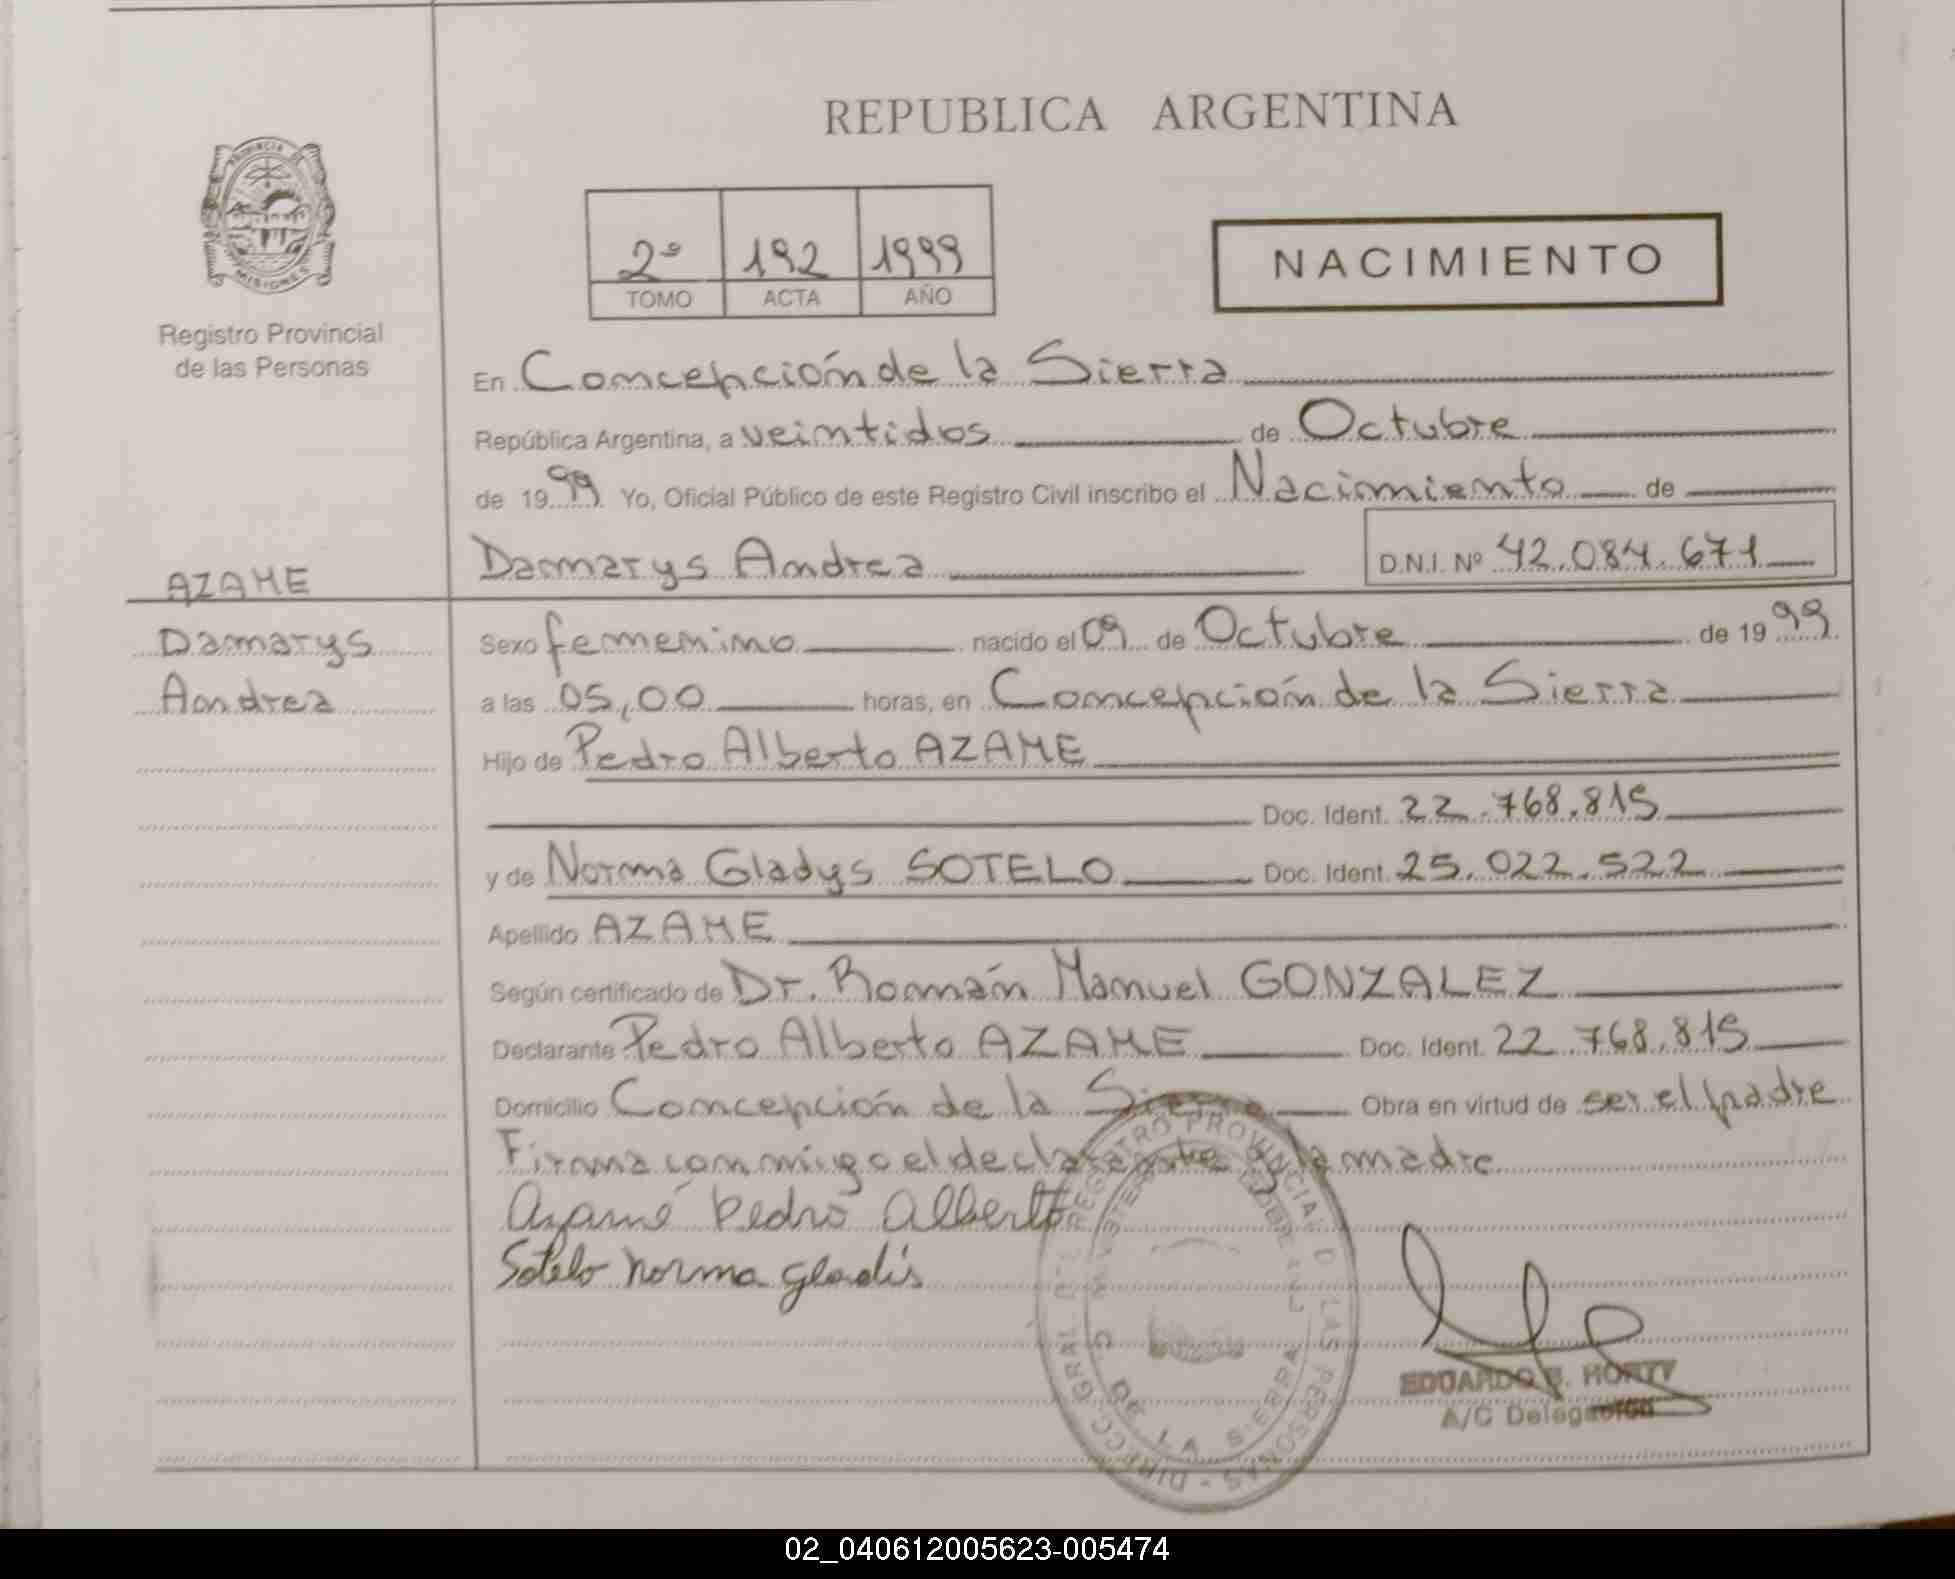 REPUBLICA ARGENTINA
PROVINCIA DE MISIONES
Registro Provincial
de las Personas
2º 192 1999
TOMO ACTA AÑO
NACIMIENTO
En Concepción de la Sierra
República Argentina, a veintidos de Octubre
de 1999 Yo, Oficial Público de este Registro Civil inscribo el Nacimiento de
Damarys Andrea D.N.I. Nº 42.084.671
AZAME
Damarys
Andrea
Sexo femenino nacido el 09 de Octubre de 1999
a las 05,00 horas, en Concepción de la Sierra
Hijo de Pedro Alberto AZAME
Doc. Ident. 22.768.815
y de Norma Gladys SOTELO Doc. Ident. 25.022.522
Apellido AZAME
Según certificado de Dr. Román Manuel GONZALEZ
Declarante Pedro Alberto AZAME Doc. Ident. 22.768.815
Domicilio Concepción de la Sierra Obra en virtud de ser el padre
Firma conmigo el declarante y la madre
Azamé Pedro Alberto
Sotelo Norma Gladis
REGISTRO PROVINCIAL DE LAS PERSONAS
DE LA SIERRA
EDUARDO HORTY
A/C Delegación
02_040612005623-005474